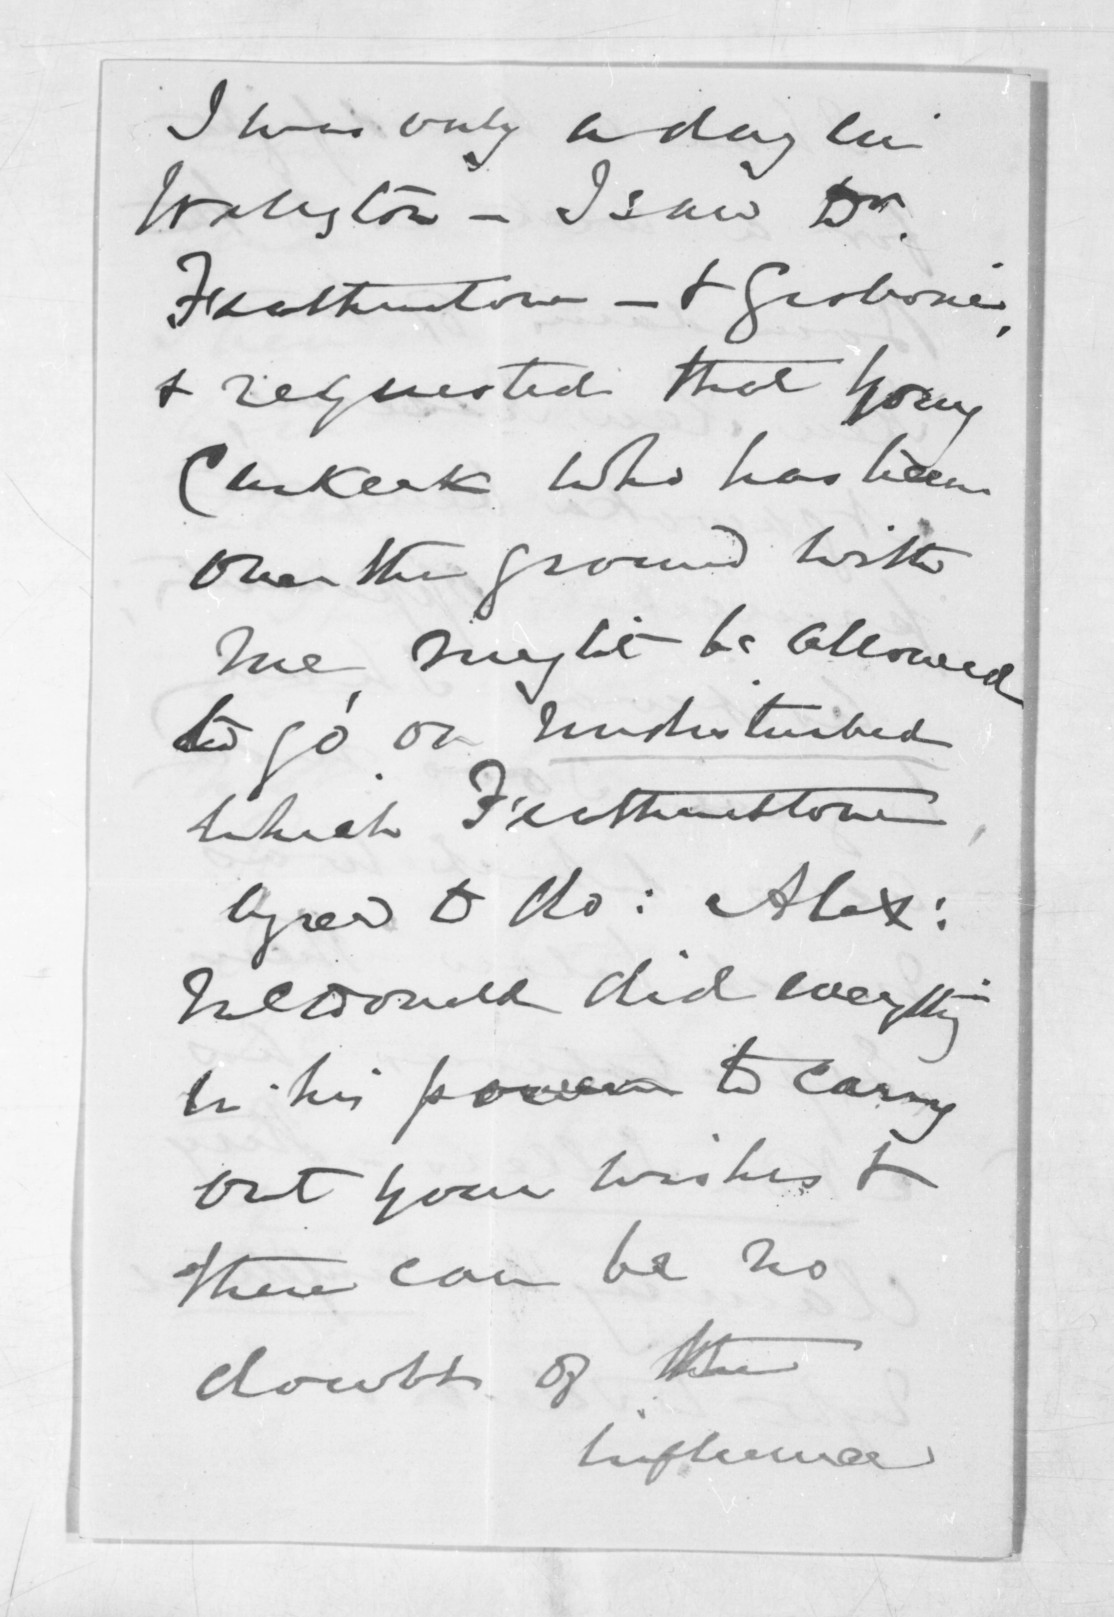 I was only a day in
Welington - I saw Dr.
Featherstone - & Gisborne,
& requested that young
Carkeek who has been
over the ground with
me might be allowed
to go on undisturbed
which Featherstone
agreed to do: Alex:
McDonald did everything
in his power to carry
out your wishes &
there can be no
doubt of the
influence